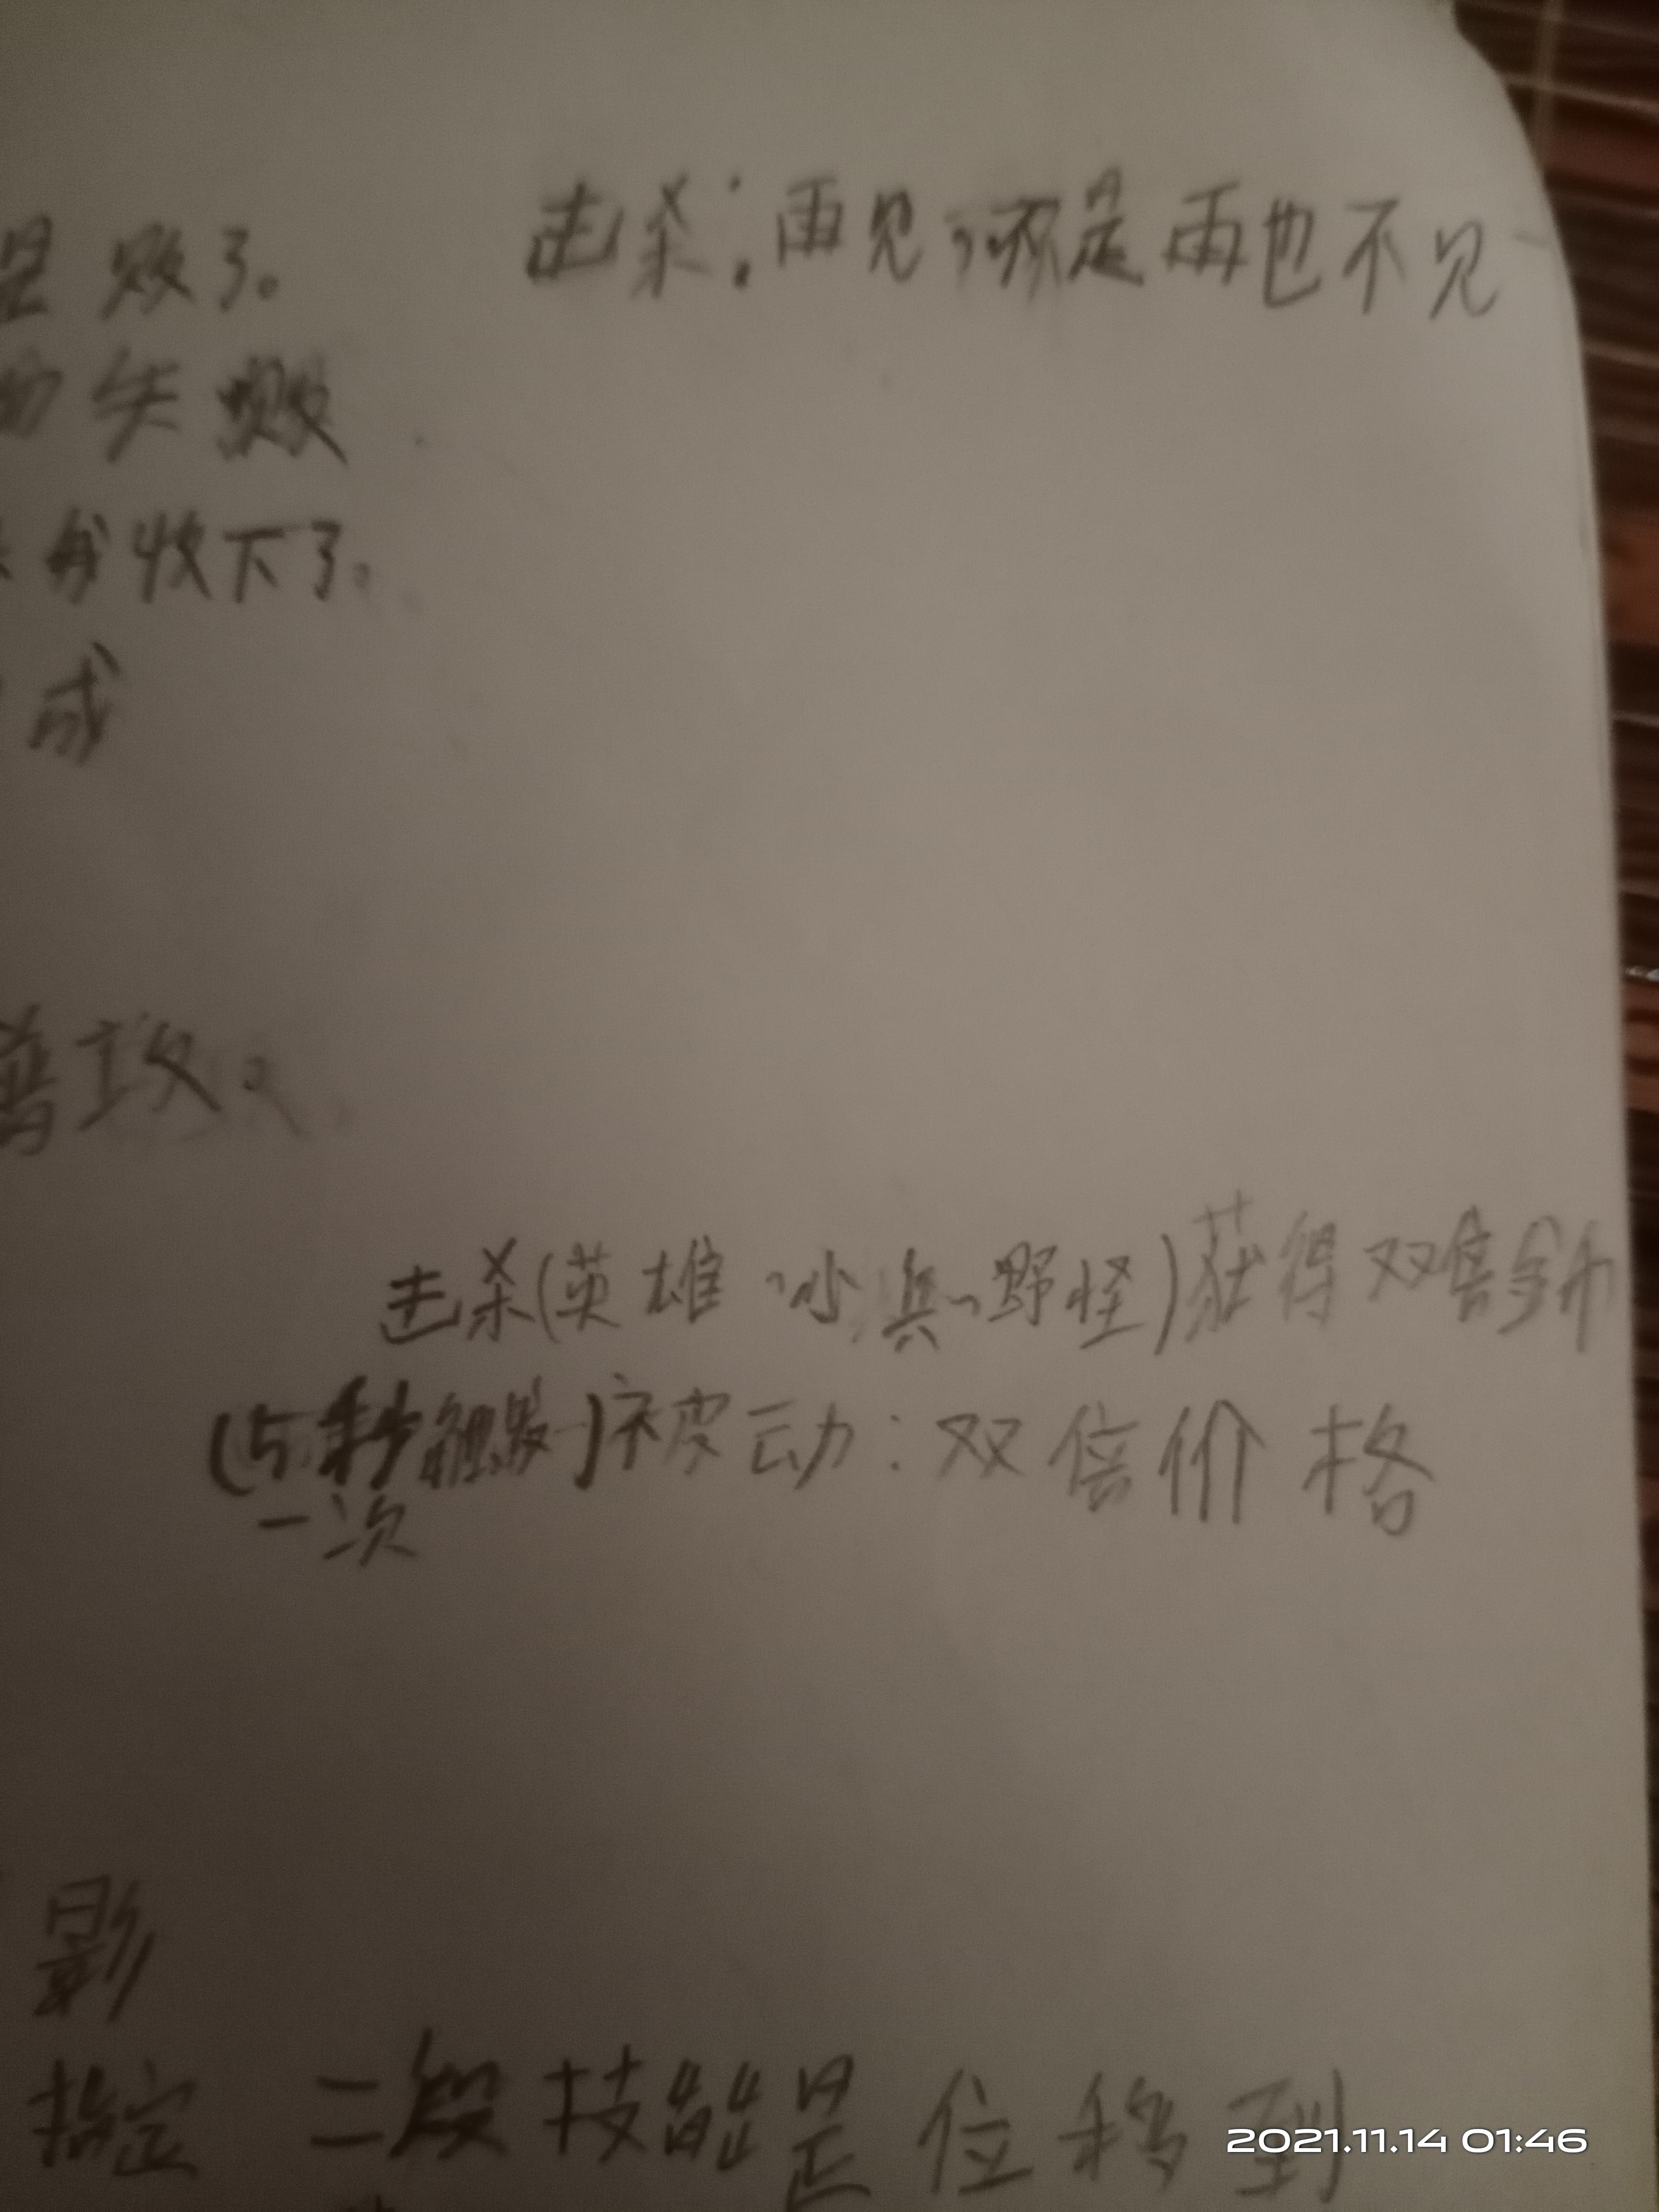 是败了。
击杀：再见，不是再也不见
的失败
我收下了。
成
普攻。
击杀(英雄、小兵、野怪)获得双倍金币
(5秒触发)被动：双倍价格
一次
影
指定 二段技能是位移到
2021.11.14 01:46